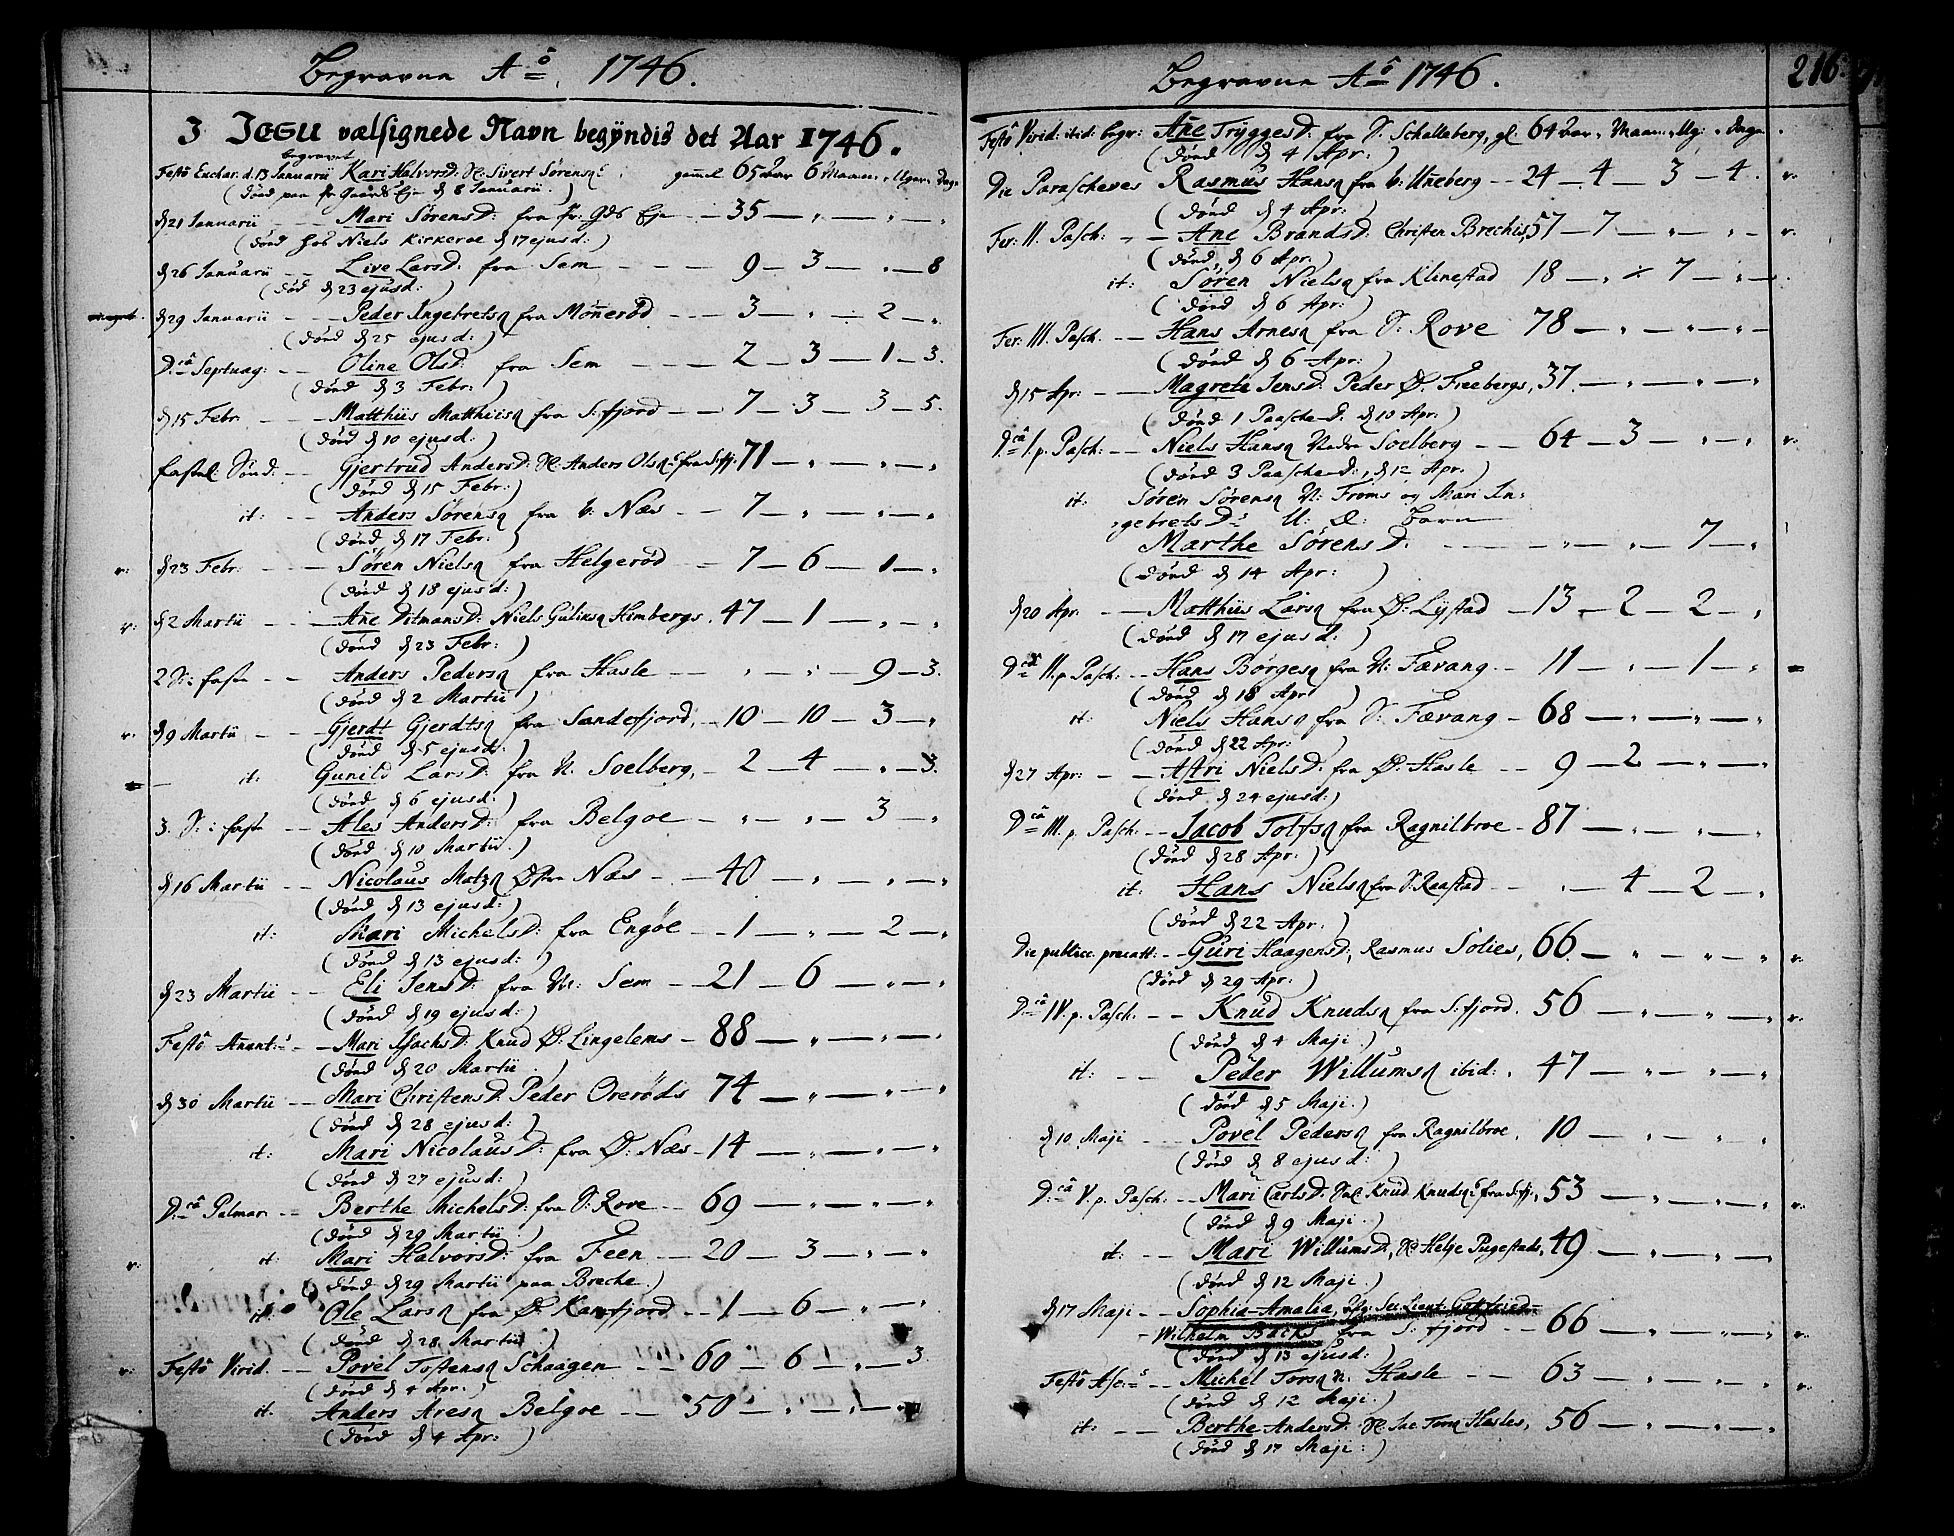 Begravne Aō 1746.
J JESU vælsignede Navn begÿndis det Aar 1746.
begravet
Festô Enchar. d. 13 Januarii Kari Halvorsd: Sl. Sivert Sørens: gammel 65 Aar 6 Maan: „ Uger „ Dage
(død paa fr Gaards Eje d 8 Januarii.)
d 21 Januarii - - Mari Sørensd: fra fr: Gds Eje - 35 — „ — „ — „
(dønd hos Niels Kirkeroe d 17 ejusd:)
d 26 Januarii - - Live Larsd: fra Sem - - - 9 — 3 — „ — 8
(død d 23 ejusd:)
d 29 Januarii - - Peder Ingebrets fra Mönerød - - 3 — „ — 2 — „
(dønd d 25 ejusd:)
D:câ Septuag: - - Oline Olsd: fra Sem - - - 2 — 3 — 1 — 3.
(dønd d 3 Febr:)
d 15 Febr - - Matthiis Matthiis fra S:fjord - - 7 — 3 — 3 — 5.
(dønd d 10 ejusd:)
fastel: Sönd: - - Gjertrud Andersd: Sl. Anders Ols: fra S:fj: 71 — „ — „ — „
(dønd d 15 Febr:)
it: - - Anders Sørens fra v: Næs - - 7 — „ — „ — „
(dønd d 17 Febr:)
v: d 23 Febr: - - Søren Niels fra Helgerød - 7 — 6 — 1 — „
(dønd d 18 ejusd:)
v: d 2 Martii - - Añe Ditmansd: Niels Gulins Himbergs. 47 — 1 — „ — „
(dønd d 23 Febr:)
2 S: faste - - Anders Peders fra Hasle - - „ — „ — 9 — 3.
(dønd d 2 Martii)
v: d 9 Martii - - Gjerdt Gjerdts fra Sandefjord, - 10 — 10 — 3 — „
(dønd d 5 ejusd:)
it: Gunild Larsd: fra N: Soelberg, - 2 — 4 — „ — 3.
(dønd d 6 ejusd:)
3. S: faste - - Ales Andersd: fra Belgoe - „ — „ — 3 — „
(dønd d 10 Martii.)
d 16 Martii - - Nicolaus Matz Østre Næs - - 40 — „ — „ — „
(dønd d 13 ejusd:)
it: Mari Michelsd: fra Engøe - - 1 — „ — 2 — „
(dønd d 13 ejusd:)
d 23 Martii - - Eli Jensd: fra N: Sem - 21 — 6 — „ — „
(dønd d 19 ejusd:)
Festô Anunt: - - Mari Isachsd: Knud Ø: Lingelems - 88 — „ — „ — „
(dønd d 20 Martii.)
d 30 Martii - - Mari Christensd: Peder Orerøds 74 — „ — „ — „
(dønd d 28 ejusd:)
it: Mari Nicolausd: fra Ø: Næs - 14 — „ — „ — „
(dønd d 27 ejusd:)
D:câ Palmar - - Berthe Michelsd: fra S: Rove - - 69 — „ — „ — „
(dønd d 29 Martii)
v: it: Mari Halvorsd: fra Feen - - 20 — 3 — „ — „
(dønd d 29 Martii paa Breche.)
it: Ole Lars fra Ø: Kamfjord - - 1 — 6 — „ — „
(dønd d 28 Martii)
v: Festô Virid. - - Povel Tostens Schaagen - - 60 — 6 — „ — 3
(dønd d 4 Apr:)
it. Anders Ares Belgoe - - 50 — „ — „ — „
(dønd d 4 Apr:)
Begravne Aō 1746.
216.
Festô Virid: ibid: begr: Añe Tryggesd: fra S: Schelleberg, gl. 64 Aar „ Maan: „ Ug: „ Dage
(dønd d 4 Apr:)
Die Parascheves Rasmus Hans fra v: Uñeberg - - 24 — 4 — 3 — 4. v:
(dønd d 4 Apr:)
Fer: II. Pasch: - - Ane Brandsd: Christen Brechis, 57 — 7 — „ — „ v:
(dønd d 6 Apr.)
it: Søren Niels fra Klinestad 18 — „ — 7 — „
(dønd d 6 Apr:)
Fer: III. Pasch. - - Hans Arnes fra S: Rove 78 — „ — „ — „
(dønd d 6 Apr:)
d 15 Apr: - - Magrete Jensd: Peder Ø. Freebergs, 37. — „ — „ — „
(dønd 1 Paasche-D: d 10 Apr:)
D:câ I. p. Pasch: - - Niels Hans Nedre Soelberg - - 64 — 3 — „ — „ v:
(dønd 3 Paasche-d:, d 12 Apr.)
it: Søren Sørens N: Froms og Mari In-
gebretsD: U: Æ: Barn
Marthe Sørensd: - - „ — „ — 7 — „
(dønd d 14 Apr:)
d 20 Apr. - - Matthiis Lars fra Ø: Lÿstad - 13 — 2 — 2 — „
(dønd d 17 ejusd:)
D:câ II. p Pasch: - - Hans Børges fra N: Fævang - - 11 — „ — 1 — „
(dønd d 18 Apr)
it: Niels Hans fra S: Fævang - 68 — „ — „ — „
(dønd d 22 Apr:)
d 27 Apr: - - Astri Nielsd: fra Ø: Hasle - - 9 — 2 — „ — „
(dønd d 24 ejusd:)
D:câ III. p. Pasch. - - Jacob Tolfs fra Ragnilbroe - 87 — „ — „ — „
(dønd d 28 Apr:)
it: Hans Niels fra S: Raastad - - „ — 4 — 2 — „
(dønd d 22 Apr.)
Die publice precatt: - - Guri Haagensd:, Rasmus Solies, 66 — „ — „ — „ v:
(dønd d 29 Apr:)
D:câ IV. p. Pasch. - - Knud Knuds fra S:fjord. 56 — „ — „ — „ v:
(dønd d 4 Maji.)
it: - - Peder Willums ibid:, 47 — „ — „ — „
(dønd d 5 Maji.)
d 10. Maji - - Povel Peders fra Ragnilbroe, 10 — „ — „ — „
(dønd d 8 ejusd:)
D:câ V. p. Pasch. - - Mari Carlsd: Sal. Knud Knuds: fra S:fj., 53 — „ — „ — „ v:
(dønd d 9 Maji.)
it: - - Mari Willumsd:, Sl Helje Pugestads, 49 — „ — „ — „
(dønd d 12 Maji.)
d 17 Maji - - Sophia-Amalia, Sec. Lieut:
Wilhelm Bucks fra S: fjord - - 66 — „ — „ — „ v:
(dønd d 13 ejusd:)
Festô Asc: - - Michel Tors N: Hasle - - 63 — „ — „ — „ v:
(dønd d 12 Maji.)
it: - - Berthe Andersd: Sl. Jac Tors Hasles, 56 — „ — „ — „
(dønd d 17 Maji:)